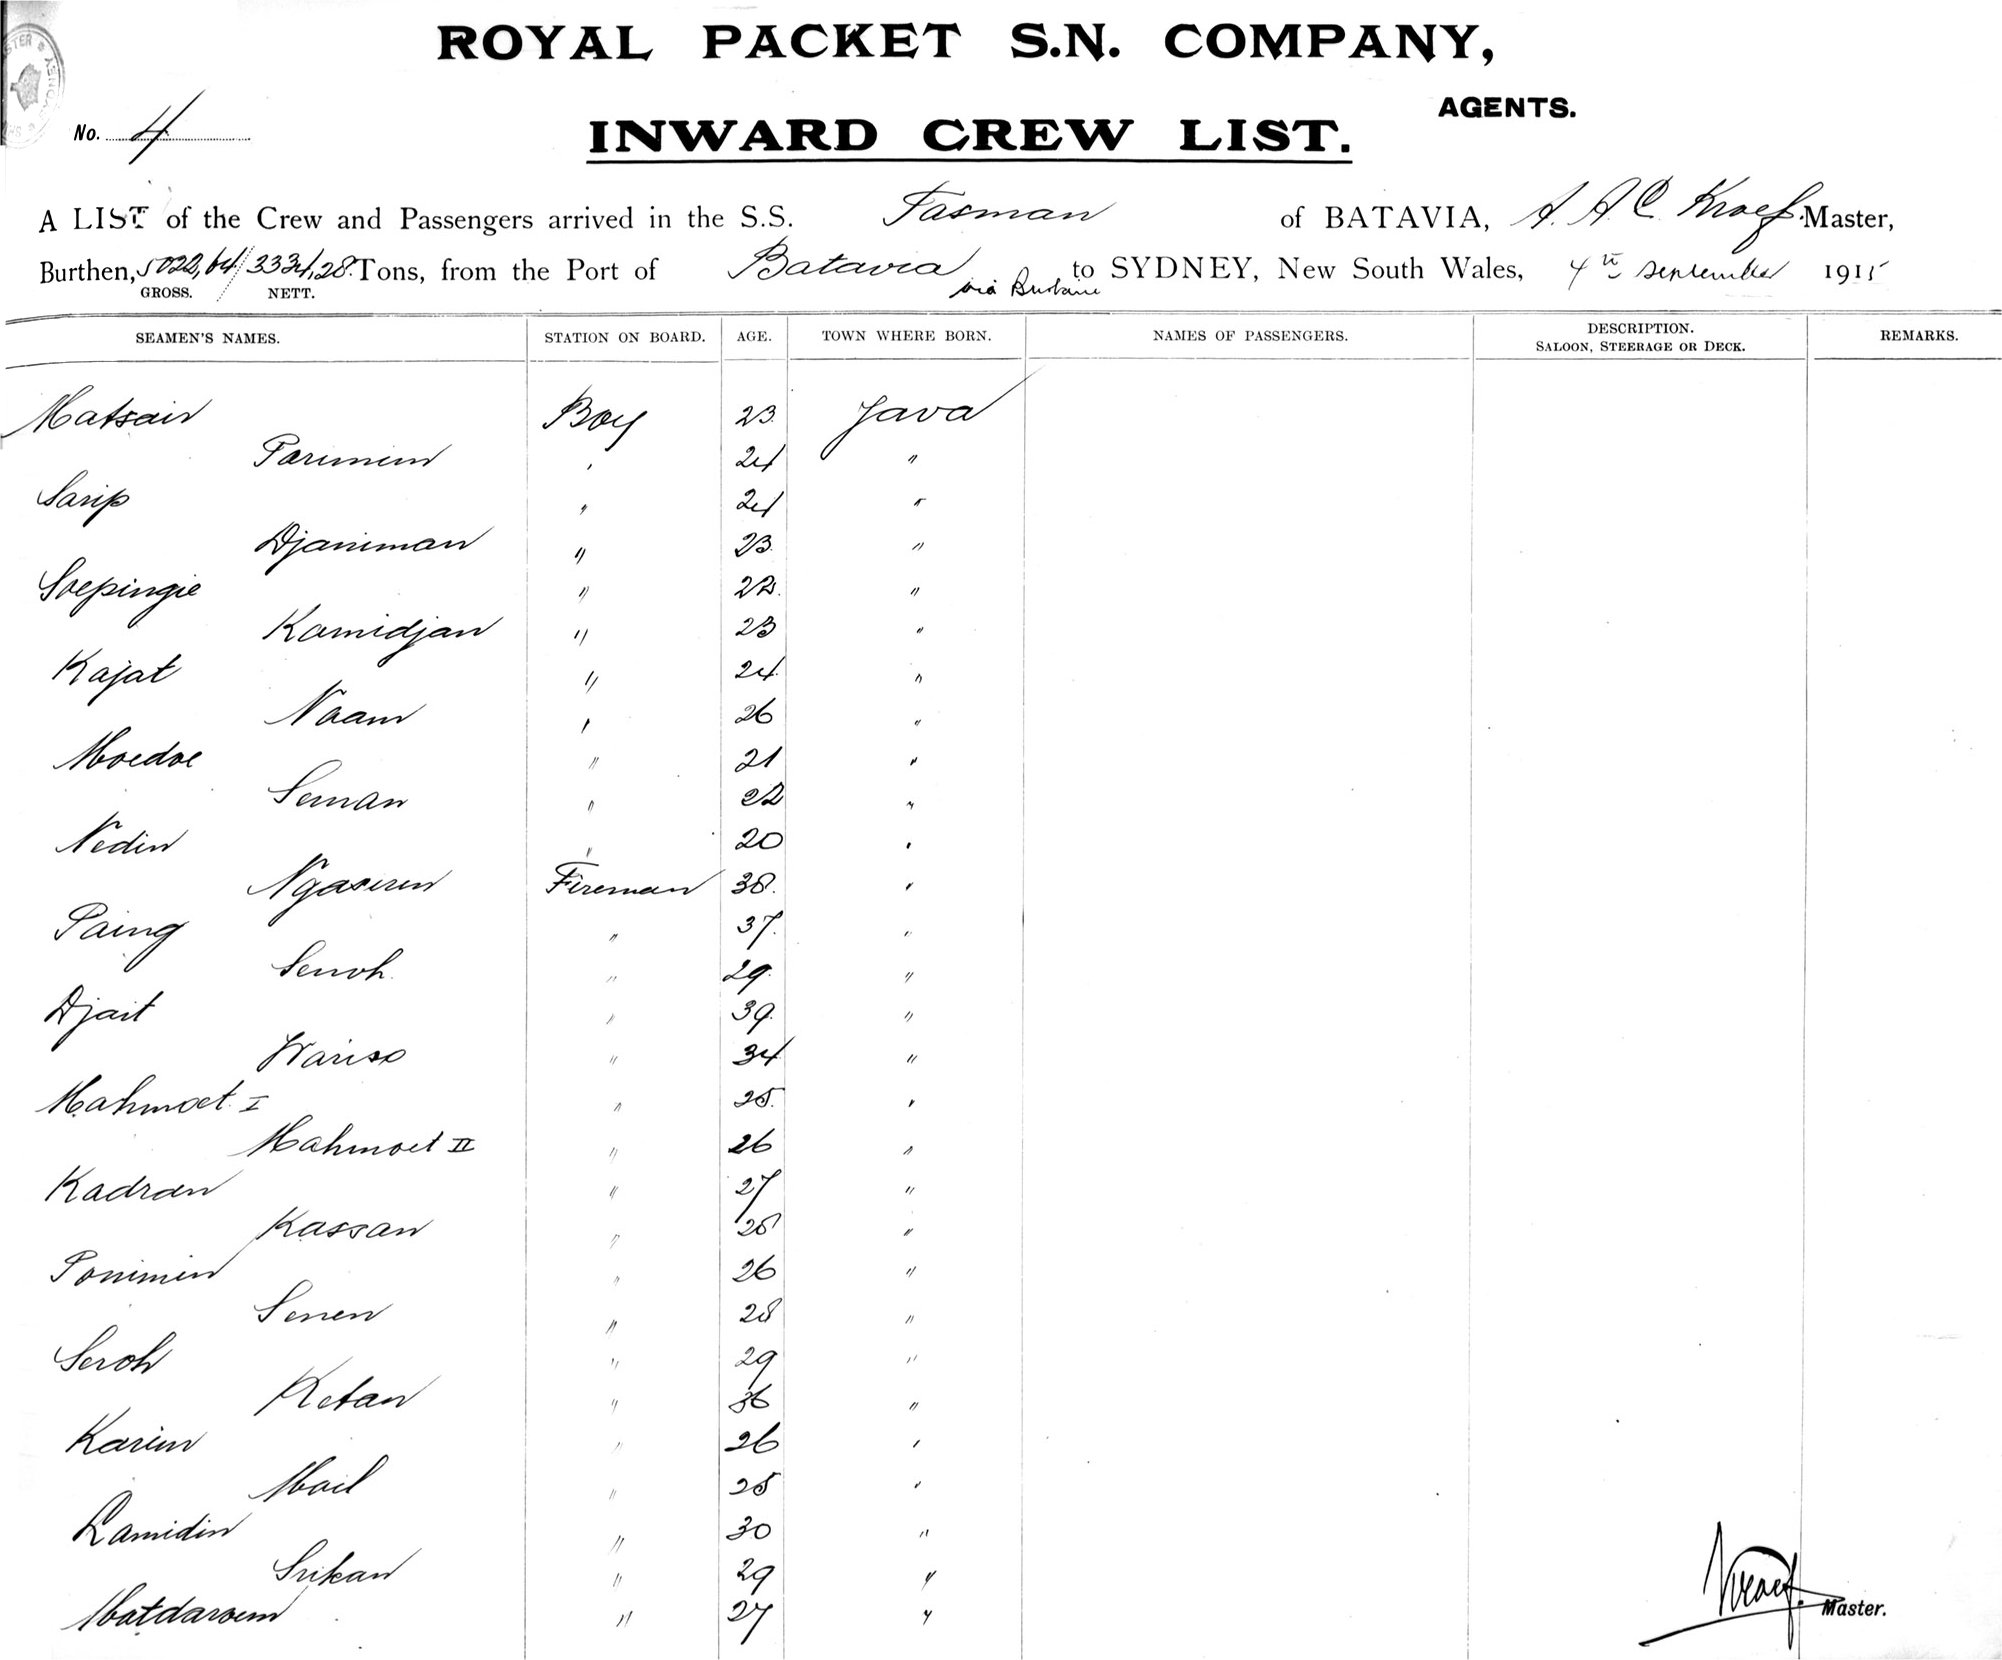 ROYAL PACKET S.N. COMPANY,
AGENTS.
No. 4
INWARD CREW LIST.
A LIST of the Crew and Passengers arrived in the S.S. Tasman of BATAVIA, A. A. C. Kroef. Master,
Burthen, 5022,64/3334,28. Tons, from the Port of Batavia via Brisbane to SYDNEY, New South Wales, 4th September 1915
GROSS. NETT.
SEAMEN'S NAMES. STATION ON BOARD. AGE. TOWN WHERE BORN. NAMES OF PASSENGERS. DESCRIPTION. SALOON, STEERAGE OR DECK. REMARKS.
Matsair Boy 23 Java
Parimin " 24 "
Sarip " 24 "
Djaniman " 23 "
Soepingie " 22 "
Kamidjan " 23 "
Kajat " 24 "
Naam " 26 "
Moedoe " 21 "
Seman " 22 "
Nedin " 20 "
Fireman 38 "
Paing " 37 "
Senoh " 29 "
Djait " 39 "
Wariso " 34 "
Mahmoet I " 25 "
Mahmoet II " 26 "
Kadran " 27 "
Kassan " 28 "
Ponimin " 26 "
Senen " 28 "
Seroh " 29 "
Ketan " 36 "
Karim " 26 "
Mail " 28 "
Ramidin " 30 "
Srikan " 29 "
Matdaroem " 27 "
Kroef. Master.